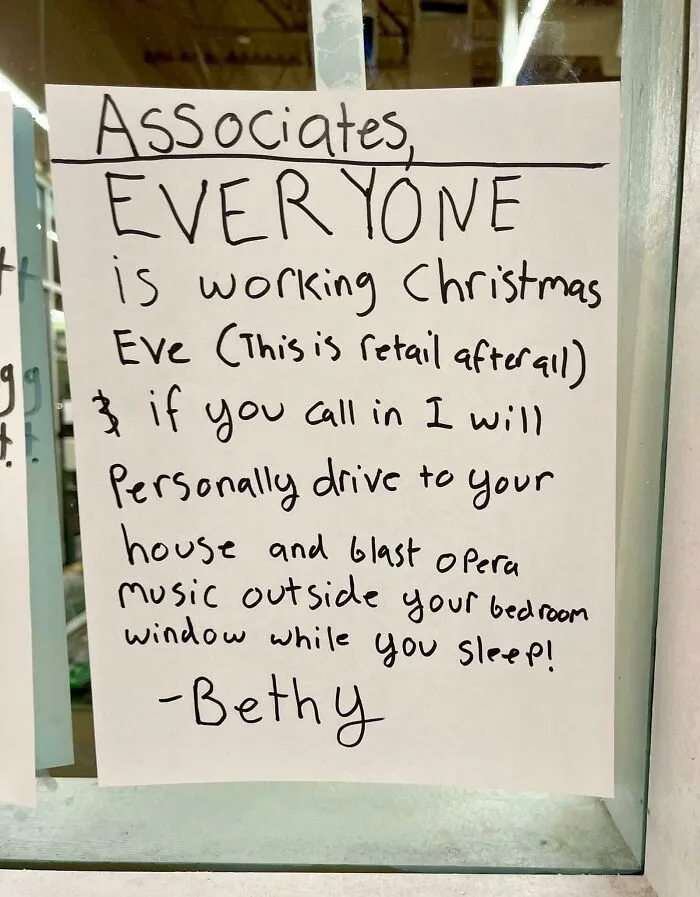 Associates,
EVERYONE
is working Christmas
Eve (This is retail after all)
& if you call in I will
Personally drive to your
house and blast opera
music outside your bedroom
window while you sleep!
-Bethy